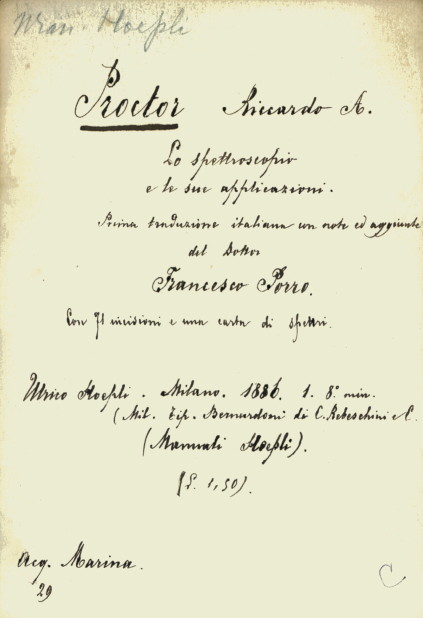 Proctor Riccardo A.
Lo spettroscopio
e le sue applicazioni.
Prima traduzione italiana con note ed aggiunte
del Dottor
Francesco Porro.
Con 71 incisioni e una carta di spettri.
Ulrico Hoepli. Milano. 1886. 1. 8.° min.
(Mil. tip. Bernardoni di C. Rebeschini e C.
(Manuali Hoepli).
(L. 1,50).
Acq. Marina.
29
C